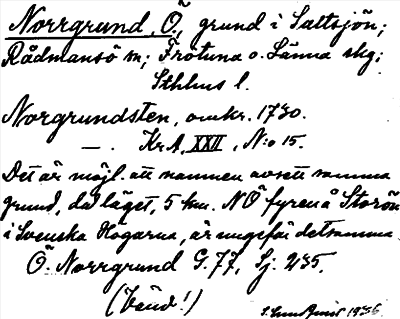 Norrgrund, Ö, grund i Saltsjön;
Rådmansö sn; Frötuna o. Länna skg;
Sthlms l.
Norgrundsten, omkr. 1730.
— . KrA, XXII, N:o 15.
Det är möjl. att namnen avsett samma
grund, då läget, 5 km. NÖ fyren å Storön
i Svenska Högarna, är ungefär detsamma.
Ö. Norrgrund G. 77, Sj. 235.
(Vänd!) 1936